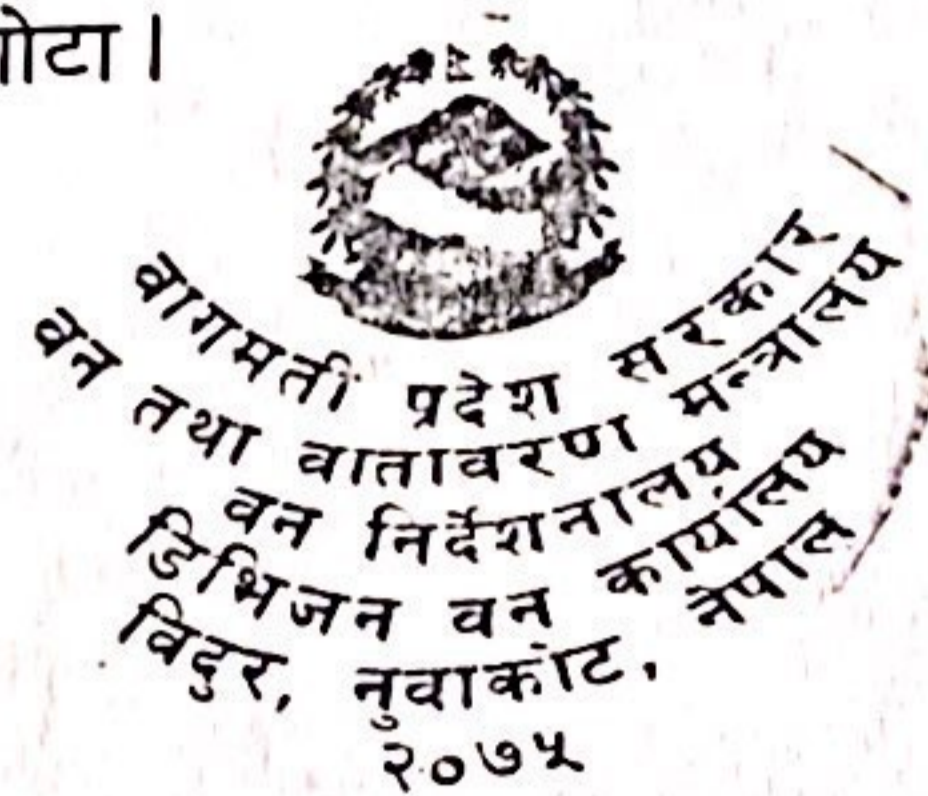 गोटा ।
वागमती प्रदेश सरकार
वन तथा वातावरण मन्त्रालय
वन निर्देशनालय
डिभिजन वन कार्यालय
विदुर, नुवाकोट, नेपाल
२०७५